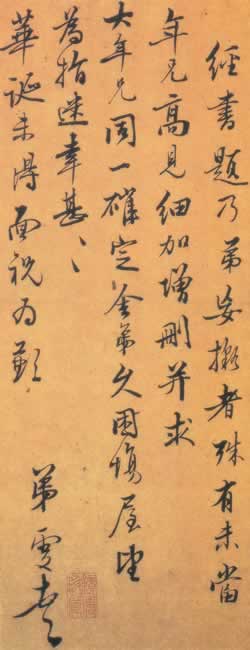 經書題乃弟妄擬者殊有未當
年兄高見細加增刪并求
大年兄同一確定舍弟久困場屋望
為指迷幸甚、
華誕未得面祝為歉
弟雯